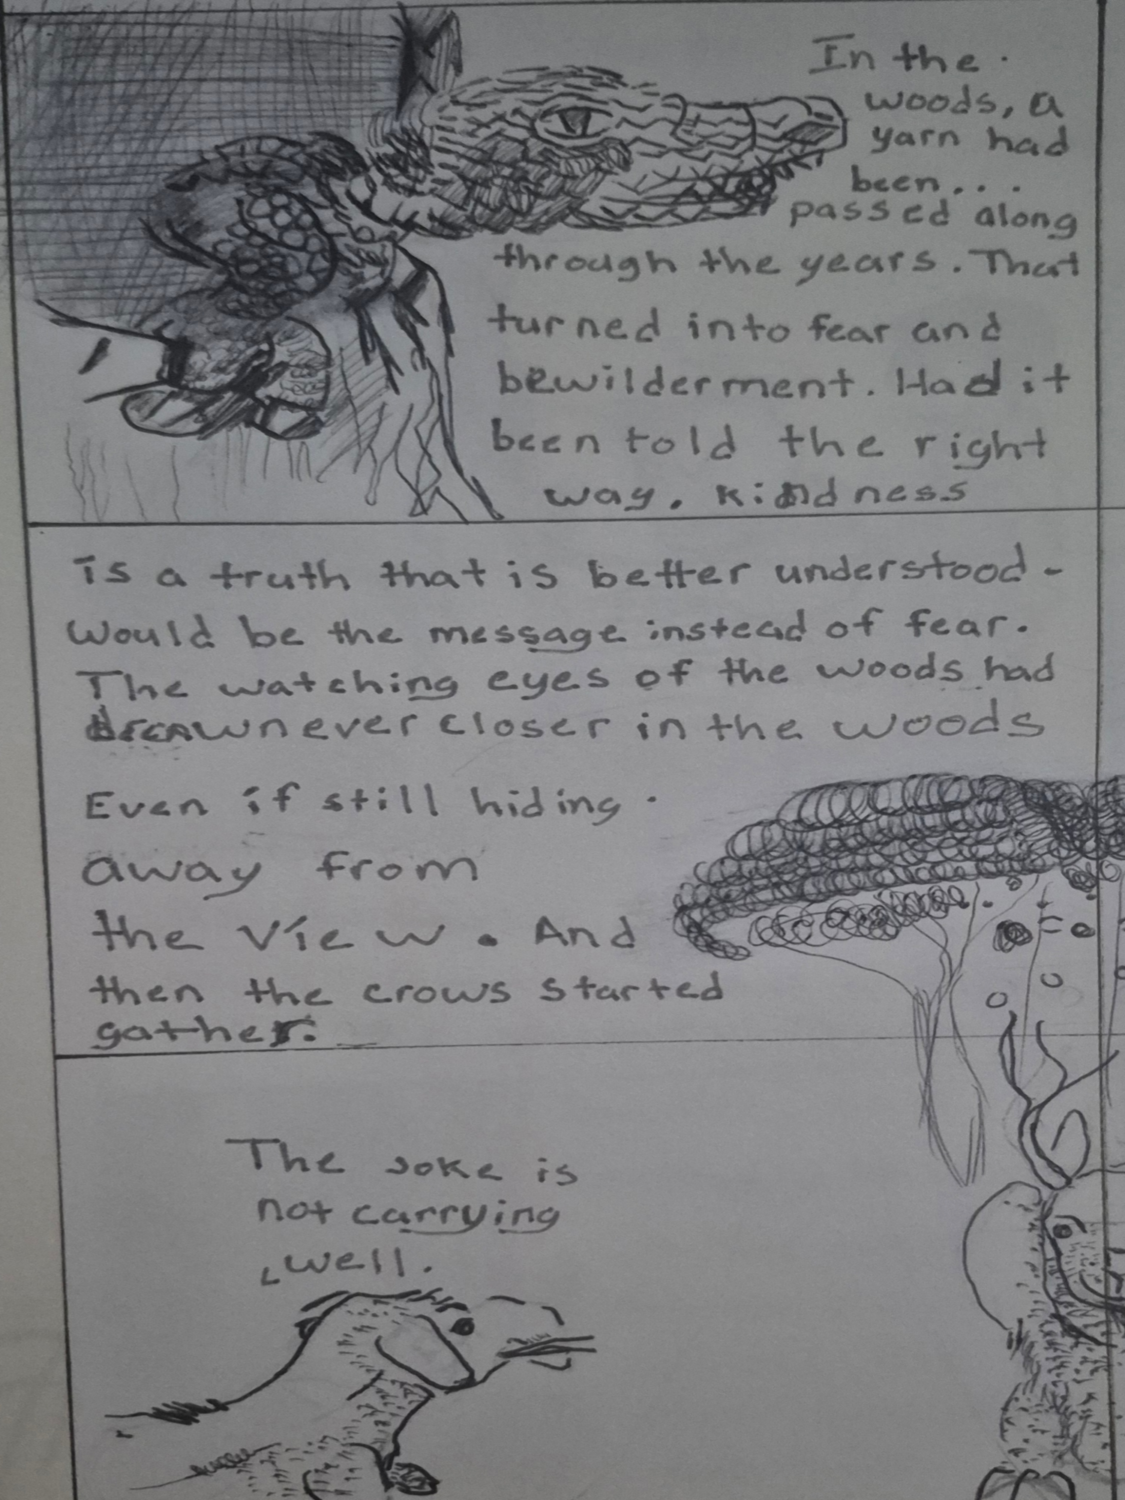 In the
woods, a
yarn had
been...
passed along
through the years. That
turned into fear and
bewilderment. Had it
been told the right
way. Kindness
is a truth that is better understood -
Would be the message instead of fear.
The watching eyes of the woods had
drawn ever closer in the woods
Even if still hiding
away from
the view. And
then the crows started
gather.
The joke is
not carrying
well.